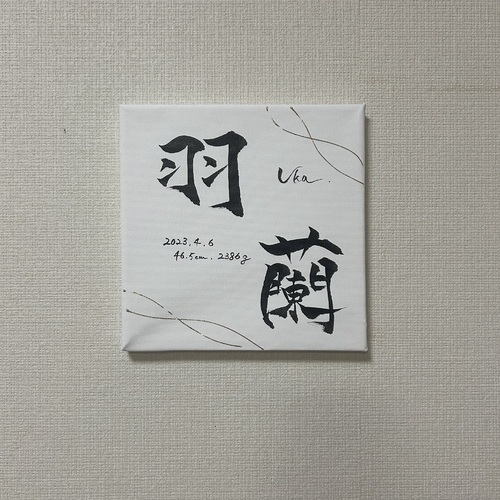 羽
Uka.
2023.4.6
46.5cm. 2386g
蘭